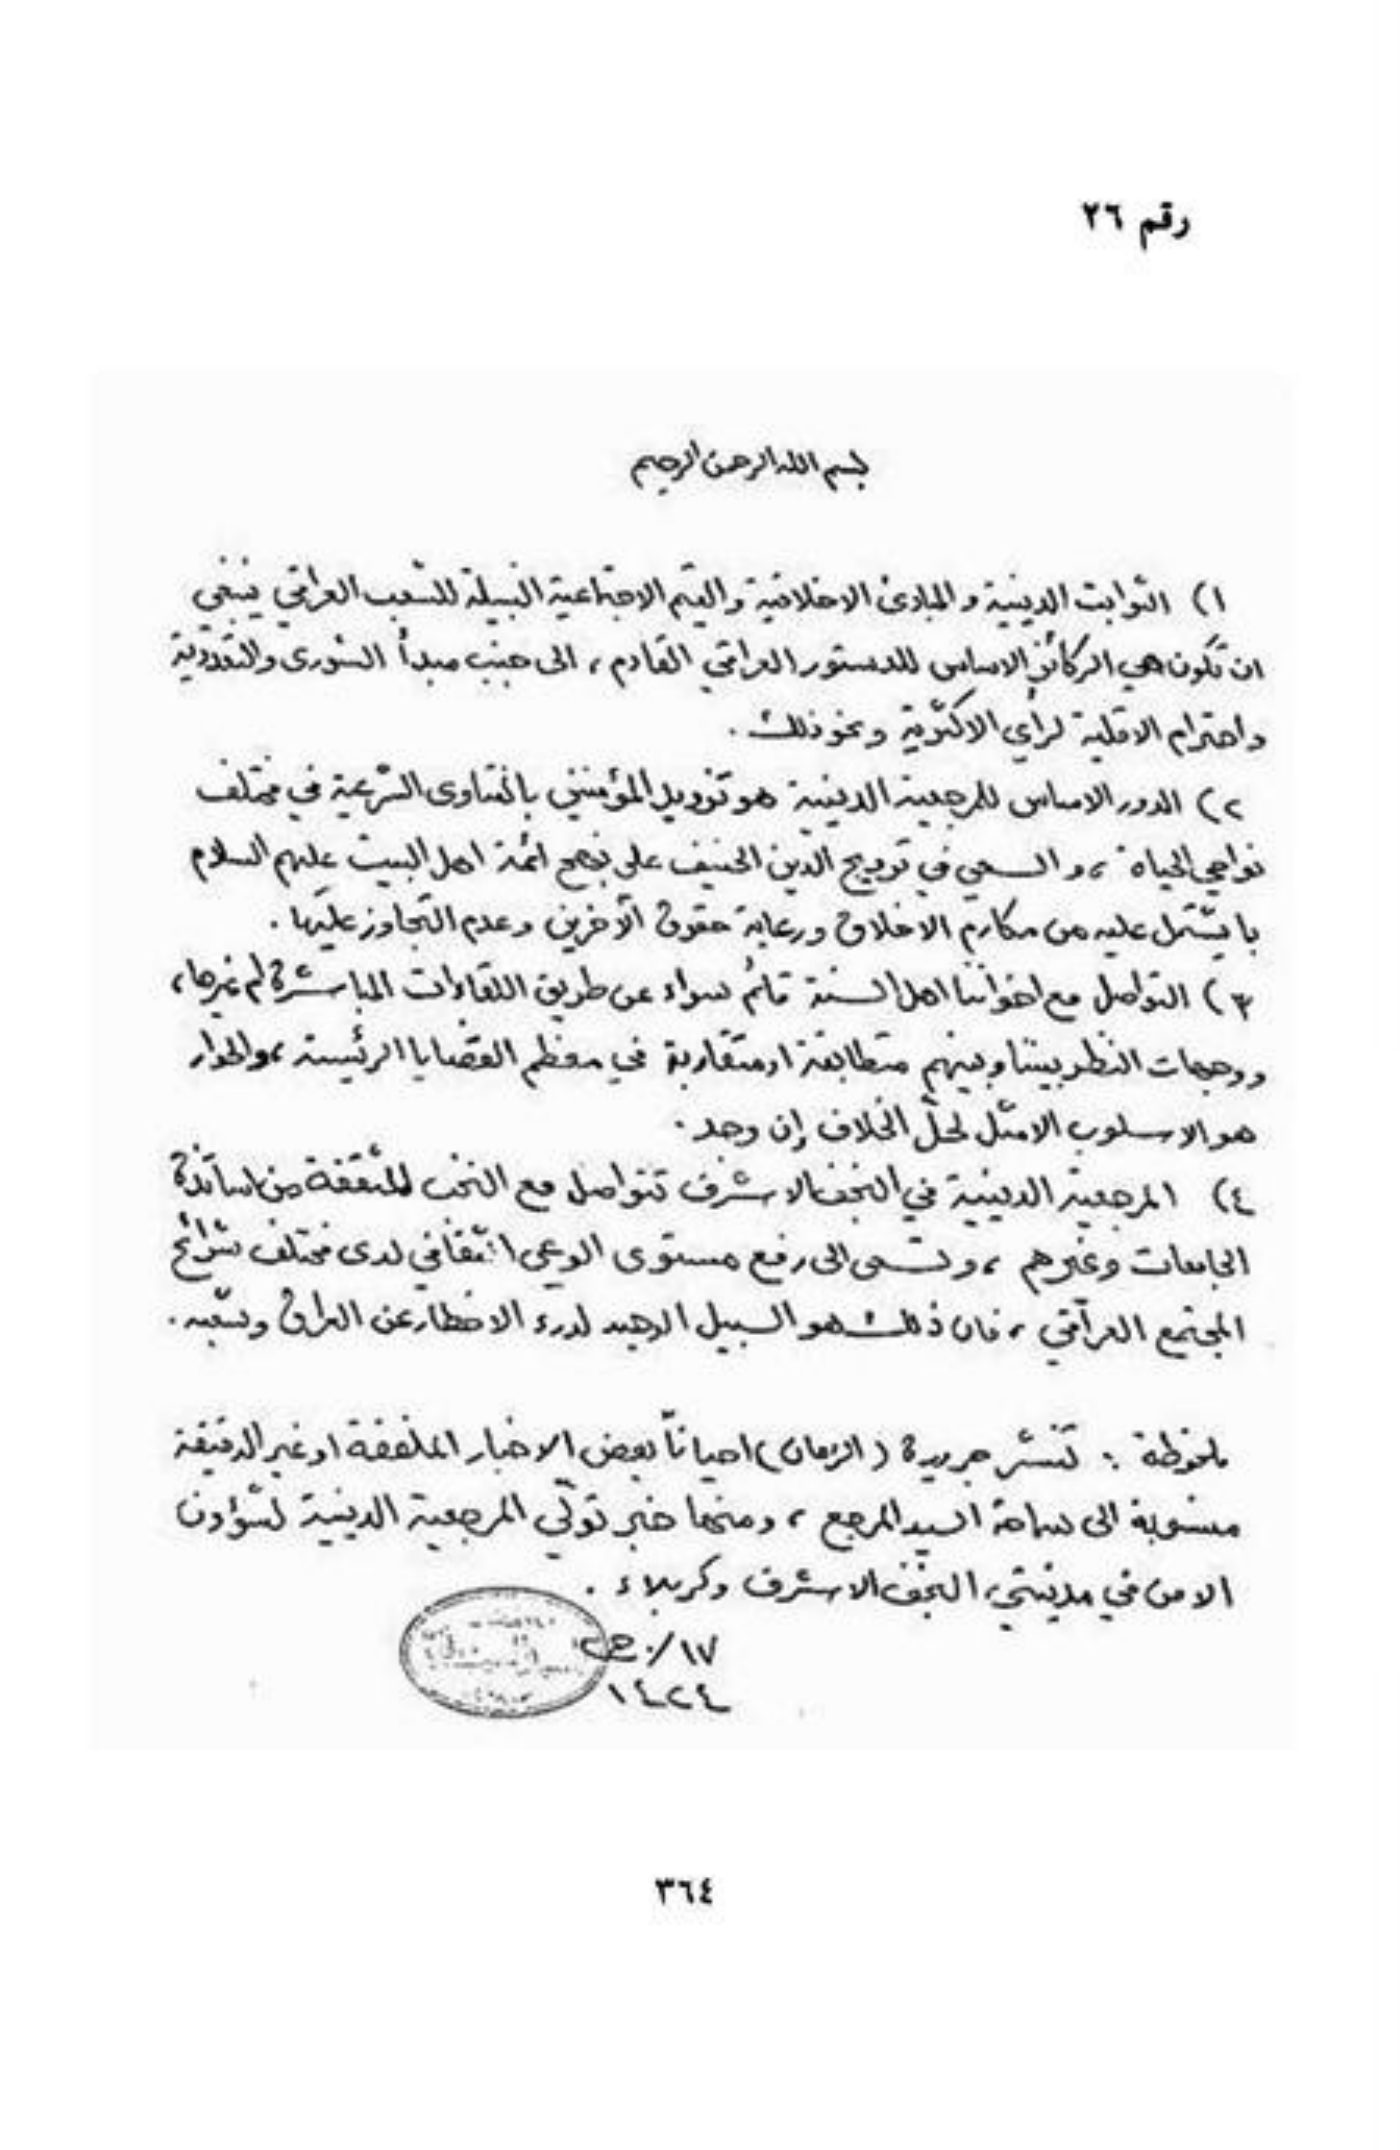 رقم ٢٦
بسم الله الرحمن الرحيم
١) الثوابت الدينية والمبادئ الاخلاقية والقيم الاجتماعية النبيلة للشعب العراقي ينبغي
ان تكون هي الركائز الاساس للدستور العراقي القادم، الى جنب مبدأ الشورى والتعددية
واحترام الاقلية لرأي الاكثرية ونحو ذلك.
٢) الدور الاساس للمرجعية الدينية هو تزويد المؤمنين بالفتاوى الشرعية في مختلف
نواحي الحياة، والسعي في ترويج الدين الحنيف على نهج ائمة اهل البيت عليهم السلام
بما يشتمل عليه من مكارم الاخلاق ورعاية حقوق الآخرين وعدم التجاوز عليها.
٣) التواصل مع اخواننا اهل السنة قائم سواء عن طريق اللقاءات المباشرة ام غيرها،
ووجهات النظر بيننا وبينهم متطابقة او متقاربة في معظم القضايا الرئيسة، والحوار
هو الاسلوب الامثل لحلّ الخلاف إن وجد.
٤) المرجعية الدينية في النجف الاشرف تتواصل مع النخب المثقفة من اساتذة
الجامعات وغيرهم، وتسعى الى رفع مستوى الوعي الثقافي لدى مختلف شرائح
المجتمع العراقي، فان ذلك هو السبيل الوحيد لدرء الاخطار عن العراق وشعبه.
ملحوظة : تنشر جريدة (الزمان) احياناً بعض الاخبار الملفقة او غير الدقيقة
منسوبة الى سماحة السيد المرجع، ومنها خبر تولّي المرجعية الدينية لشؤون
الامن في مدينتي النجف الاشرف وكربلاء.
١٧/
١٤٢٤
٣٦٤